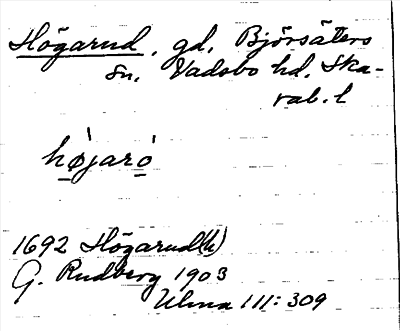 Högarud, gd, Björsäters
sn. Vadsbo hd. Ska-
rab. l
højarò
1692 Högarud(h)
G. Rudberg 1903
Ulma 111:309